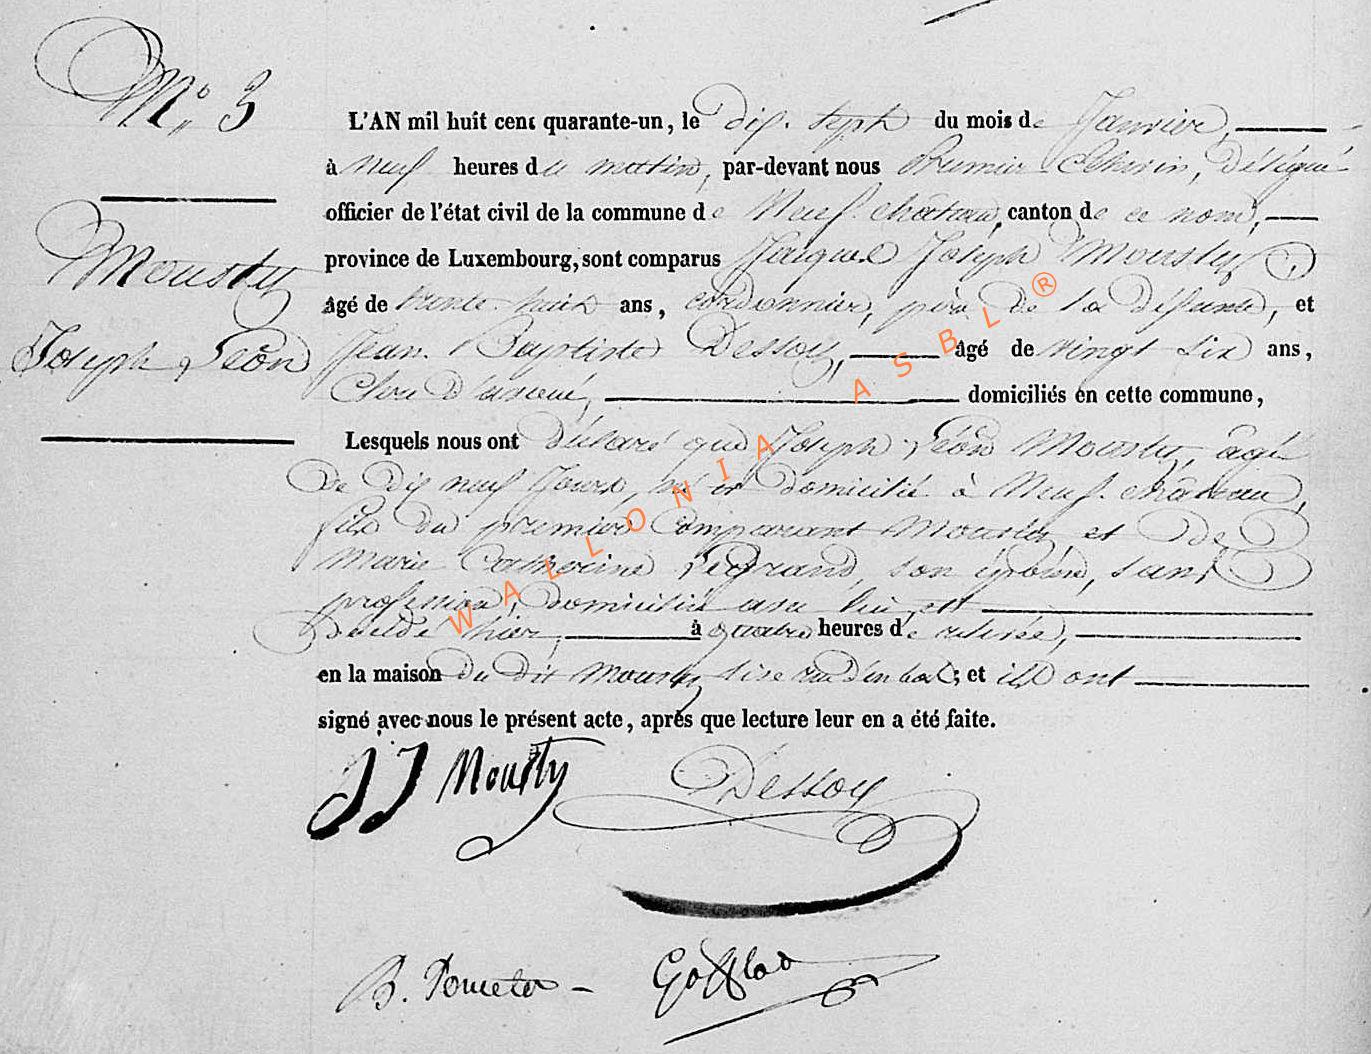 N° 3
Mousty
Joseph, Léon
L'AN mil huit cent quarante-un, le dix-sept du mois de Janvier,
à neuf heures du matin, par-devant nous Premier Echevin, délégué
officier de l'état civil de la commune de Neufchateau, canton de ce nom,
province de Luxembourg, sont comparus Jacques Joseph Mousty,
âgé de trente huit ans, cordonnier, père de la défunte, et
Jean Baptiste Dessoy, âgé de vingt six ans,
domiciliés en cette commune,
Lesquels nous ont déclaré que Joseph, Léon Mousty, agé
de dix neuf Jours, né et domicilié à Neufchateau,
fils du premier comparant Mousty et de
Marie Catherine Legrand, son épouse, sans
profession, domiciliée avec lui, est
décédé hier, à quatre heures de relevée,
en la maison du dit Mousty, sise rue d'en bas; et ils ont
signé avec nous le présent acte, après que lecture leur en a été faite.
JJ Mousty Dessoy
B.
WALLONIA ASBL ®